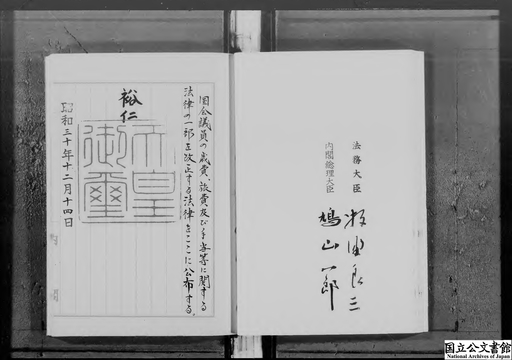 国会議員の歳費、旅費及び手当等に関する
法律の一部を改正する法律をここに公布する。
裕仁
天皇
御璽
昭和三十年十二月十四日
法務大臣
牧野良三
内閣総理大臣
鳩山一郎
国立公文書館
National Archives of Japan